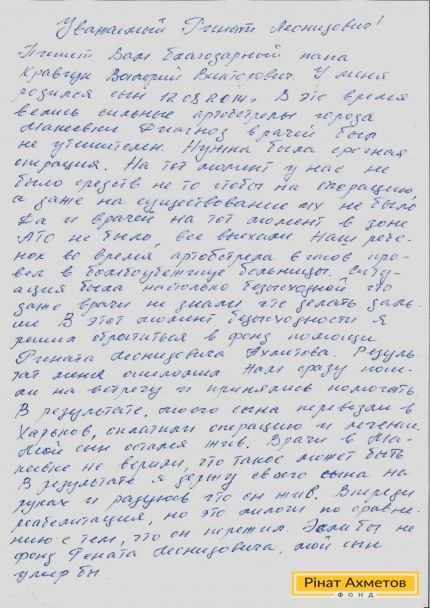 Уважаемый Ринат Леонидович!
Пишет Вам благодарный папа
Кравчук Валерий Викторович У меня
родился сын 12.08.2014г. В это время
велись сильные артобстрелы города
Макеевки Диагноз врачей был
не утешителен. Нужна была срочная
операция. На тот момент у нас не
было средств не то чтобы на операцию,
а даже на существование их не было
Да и врачей на тот момент в зоне
АТО не было, все выехали. Наш ребе-
нок во время артобстрела часов про-
вел в бомбоубежище больницы. Ситу-
ация была настолько безысходной что
даже врачи не знали, что делать даль-
ше В этот момент безысходности я
решил обратиться в фонд помощи
Рината Леонидовича Ахметова. Резуль-
тат меня ошеломил Нам сразу пош-
ли на встречу и принялись помогать
В результате, моего сына перевезли в
Харьков, оплатили операцию и лечение.
Мой сын остался жив. Врачи в Ма-
кеевке не верили, что такое может быть
В результате я держу своего сына на
руках и радуюсь что он жив. Впереди
реабилитация, но это мелочи по сравне-
нию с тем, что он пережил. Если бы не
фонд Рената Леонидовича, мой сын
умер бы.
Рінат Ахметов
ФОНД